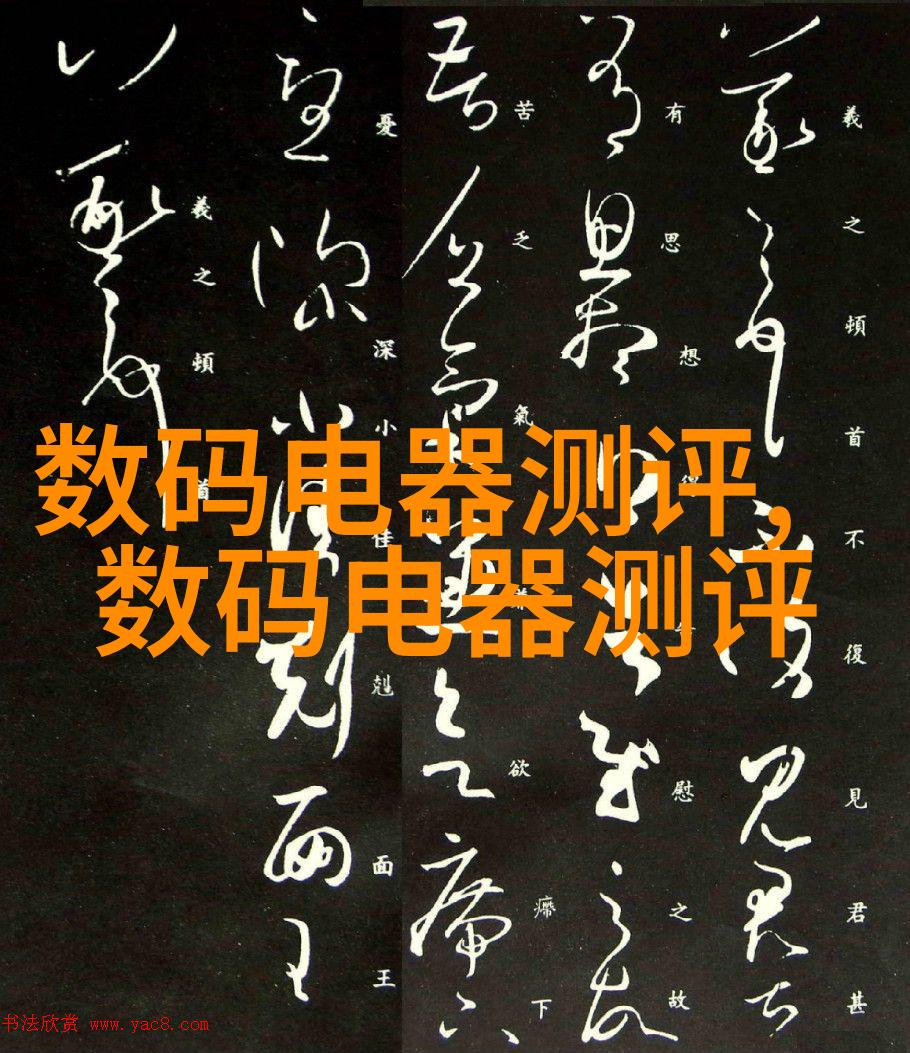 羲之頓首不復見君甚
有思想慰之故
苦乏氣欲下
憂深小佳剋面王
羲之頓首
数码电器测评,
数码电器测评
书法欣赏 www.yac8.com